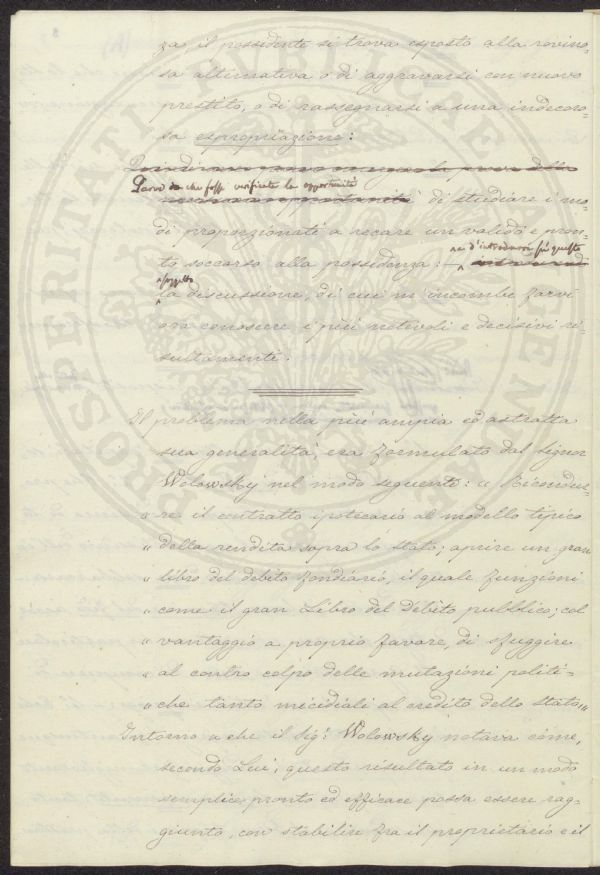 za il possidente si trova esposto alla rovino-
sa alternativa o di aggravarsi con nuovo
prestito, o di rassegnarsi a una indecoro-
sa espropriazione:
Parve che fosse verificata la opportunità
di studiare i mo-
di proporzionati a recare un valido e pron-
to soccorso alla possidenza:
soggetto
la discussione, di cui m'incombe farvi
ora conoscere i più notevoli e decisivi ri-
sultamenti.
Il problema nella più ampia ed astratta
sua generalità, era formulato dal signor
Wolowsky nel modo seguente: « Ricondur-
« re il contratto ipotecario al modello tipico
« della rendita sopra lo stato; aprire un gran
« libro del debito fondiario, il quale funzioni
« come il gran Libro del Debito pubblico; col
« vantaggio a proprio favore, di sfuggire
« al contro colpo delle mutazioni politi-
« che tanto micidiali al credito dello Stato,"
Intorno a che il Sig: Wolowsky notava come,
secondo Lui, questo risultato in un modo
semplice pronto ed efficace possa essere rag-
giunto, con stabilire fra il proprietario e il
PROSPERITATI PVBLICAE AVGENDAE